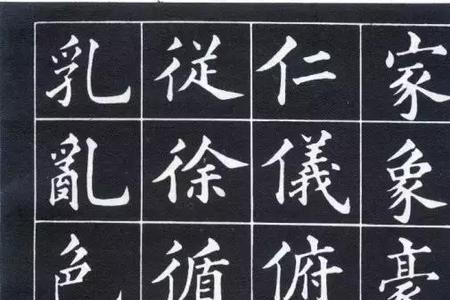 家象豪
仁儀俯
従徐循
乳亂色